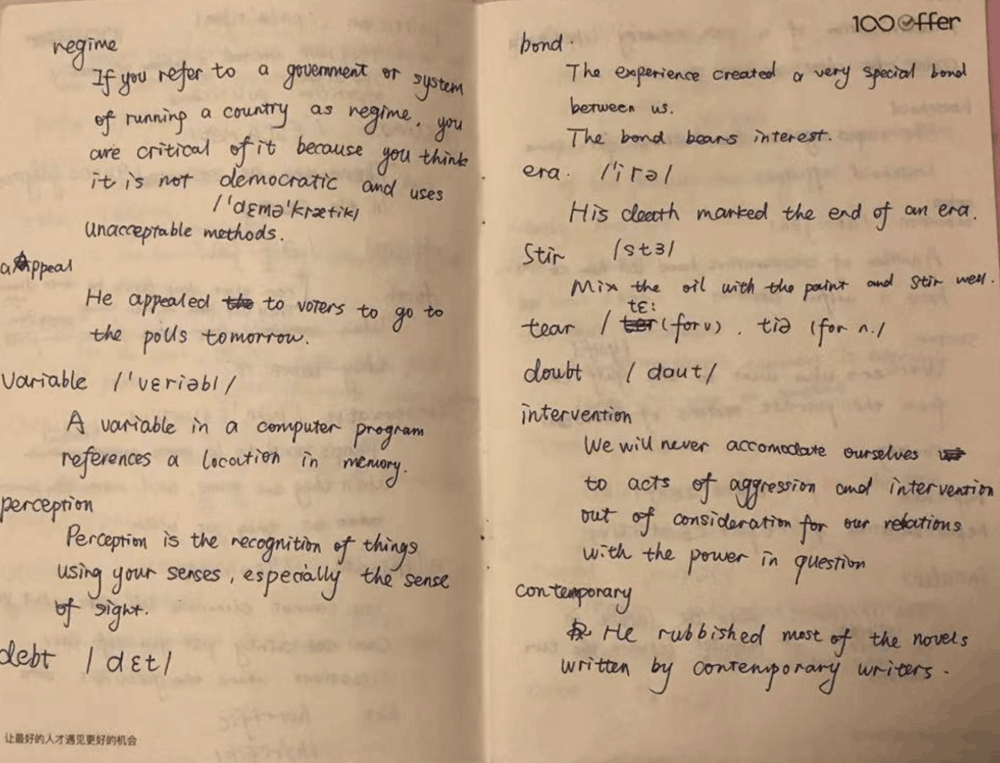 regime
If you refer to a government or system
of running a country as regime, you
are critical of it because you think
it is not democratic and uses
/'dɛmə'krætik/
unacceptable methods.
appeal
He appealed to voters to go to
the polls tomorrow.
variable /'vɛriəbl/
A variable in a computer program
references a location in memory.
perception
Perception is the recognition of things
using your senses, especially the sense
of sight.
debt /dɛt/
让最好的人才遇见更好的机会
100 offer
bond.
The experience created a very special bond
between us.
The bond bears interest.
era. /'irə/
His death marked the end of an era.
Stir /stɜ/
Mix the oil with the paint and stir well.
tɛ:
tear / (for v) . tiə (for n./
doubt /daut/
intervention
We will never accomodate ourselves
to acts of aggression and intervention
out of consideration for our relations
with the power in question
contemporary
He rubbished most of the novels
written by contemporary writers.